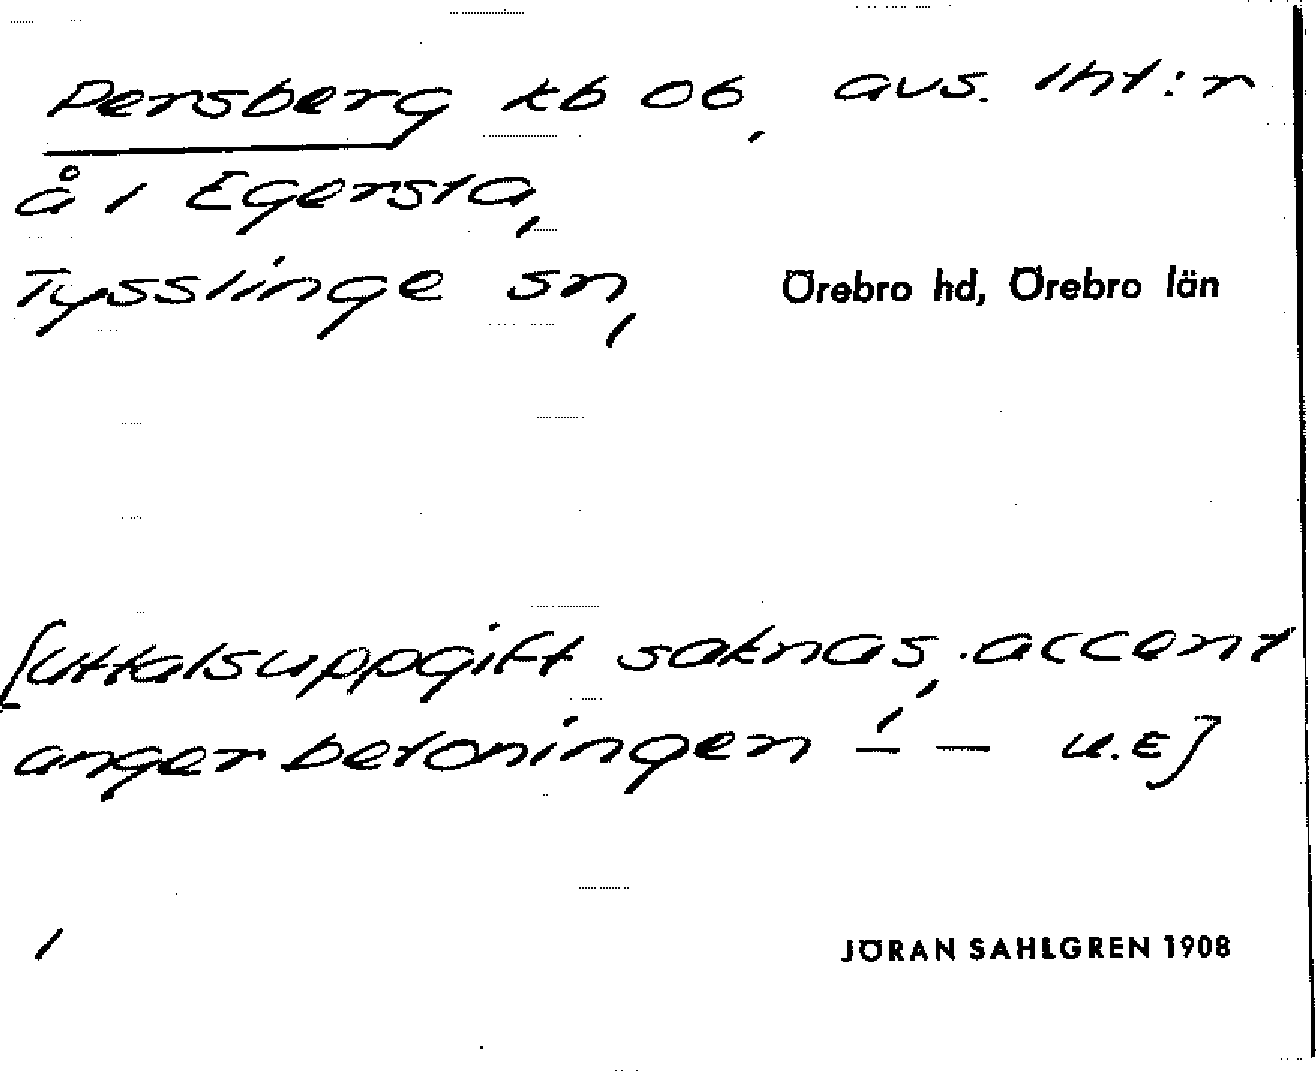 Persberg kb 06, avs. lht:r
å i Egersta,
Tysslinge sn, Örebro hd, Örebro län
[uttalsuppgift saknas, accent
anger betoningen –́ – u.E]
/
JÖRAN SAHLGREN 1908